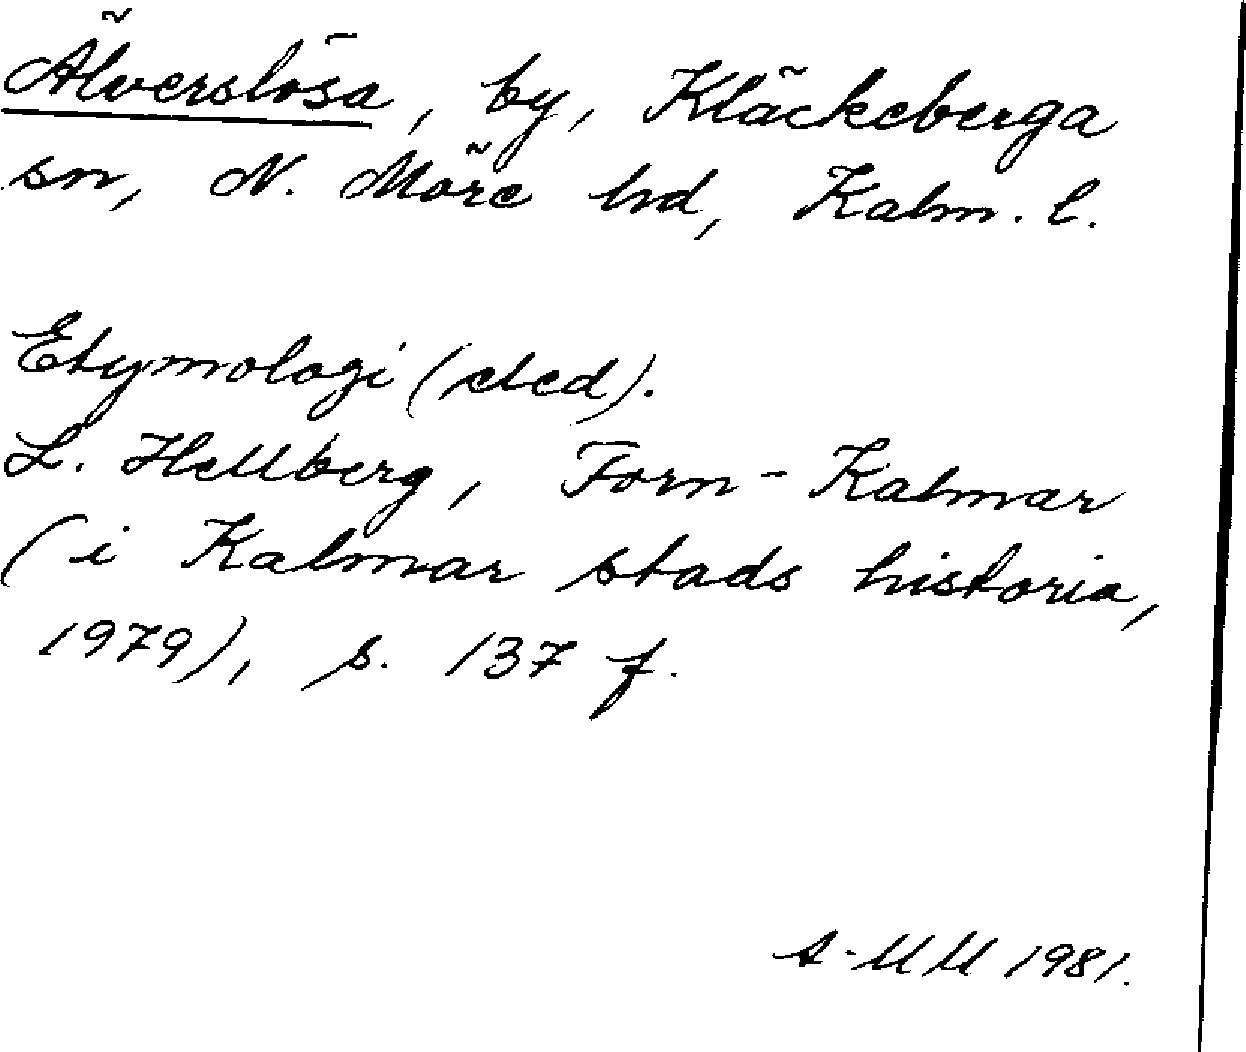 Älverslösa, by, Kläckeberga
sn, N. Möre hd, Kalm. l.
Etymologi (eled).
L. Hellberg, Forn-Kalmar
(i Kalmar stads historia,
1979), s. 137 f.
A-MM 1981.